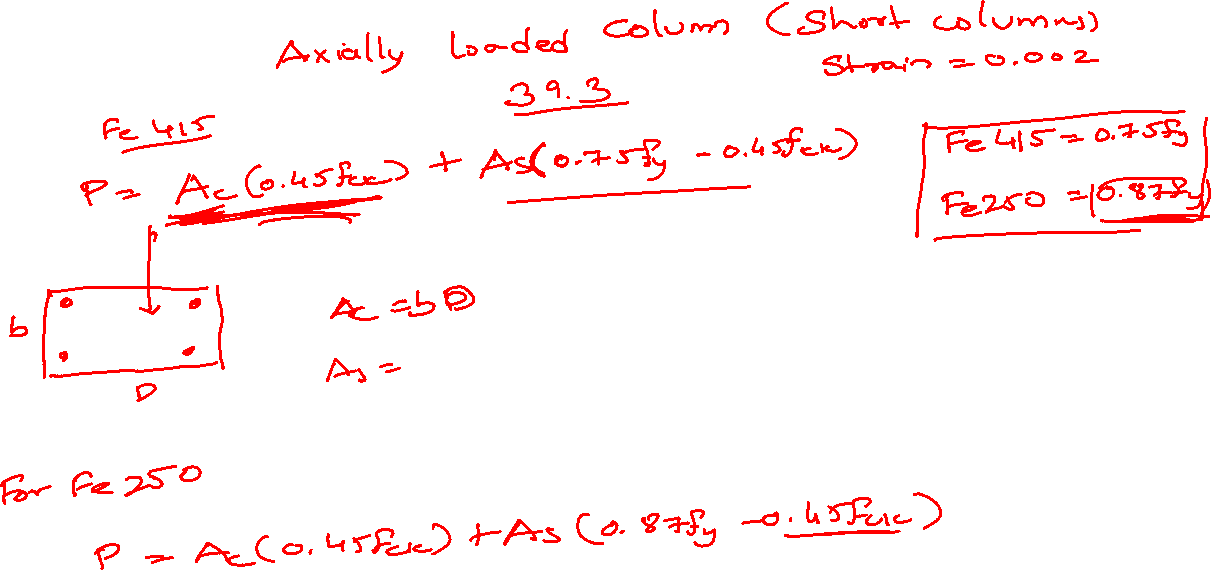 Axially Loaded Column (Short columns)
Strain = 0.002
39.3
Fe 415
P = Ac (0.45fck) + As(0.75fy - 0.45fck)
Fe 415 = 0.75fy
Fe250 = 0.87fy
b
D
Ac = bD
As =
For Fe 250
P = Ac (0.45fck) + As (0.87fy - 0.45fck)